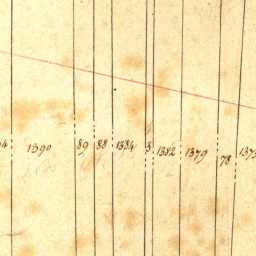 1390 89 88 1384 3 1382 1379 78